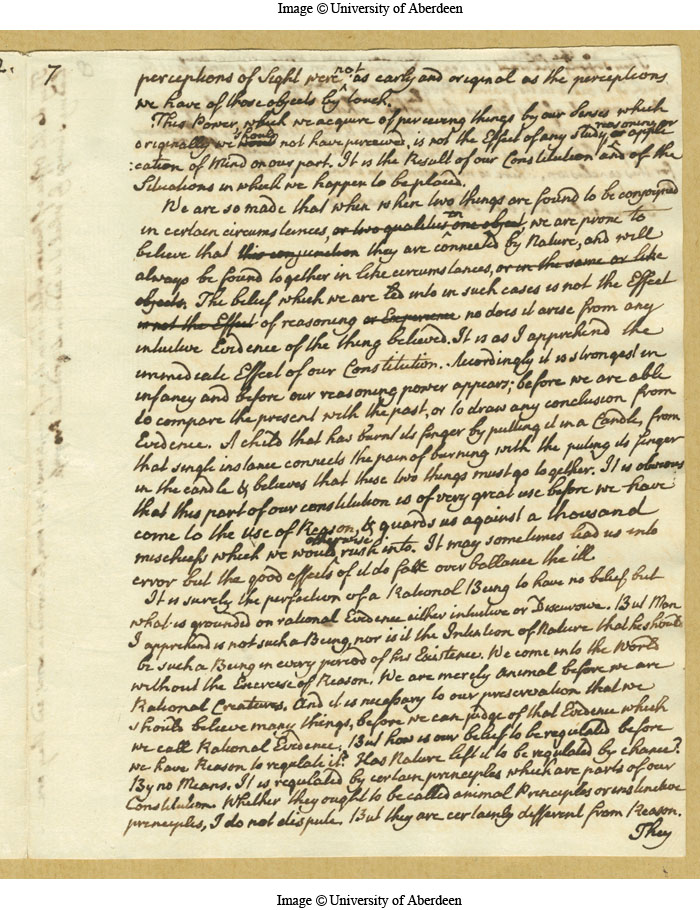 Image © University of Aberdeen
2. 7
perceptions of Sight were not as early and original as the perceptions
we have of those objects by touch.
This Power, which we acquire of perceiving things by our Senses which
originally we should not have perceived, is not the Effect of any study, reasoning or appli
:cation of Mind on our part. It is the Result of our Constitution and of the
Situations in which we happen to be placed.
We are so made that when when two things are found to be conjoyned
in certain circumstances, or two qualities in one object, we are prone to
believe that this conjunction they are connected by Nature, and will
always be found together in like circumstances, or in the same or like
objects. The belief which we are led into in such cases is not the Effect
is not the Effect of reasoning or Experience no does it arise from any
intuitive Evidence of the thing believed. It is as I apprehend the
immediate Effect of our Constitution. Accordingly it is strongest in
infancy and before our reasoning power appears; before we are able
to compare the present with the past, or to draw any conclusion from
Evidence. A child that has burnt its finger by putting it in a Candle, from
that single instance connects the pain of burning with the puting its finger
in the candle & believes that these two things must go together. It is obvious
that this part of our constitution is of very great use before we have
come to the Use of Reason, & guards us against a thousand
mischiefs which we would otherwise rush into. It may sometimes lead us into
error but the good effects of it do far over ballance the ill.
It is surely the perfection of a Rational Being to have no belief but
what is grounded on rational Evidence either intuitive or Discursive. But Man
I apprehend is not such a Being, nor is it the Intention of Nature that he should
be such a Being in every period of his Existence. We come into the World
without the Exercise of Reason. We are merely Animal before we are
Rational Creatures. And it is necessary to our preservation that we
should believe many things, before we can judge of that Evidence which
we call Rational Evidence. But how is our belief to be regulated before
we have Reason to regulate it? Has Nature left it to be regulated by chance?
By no Means. It is regulated by certain principles which are parts of our
Constitution. Whether they ought to be called animal Principles or instinctive
principles, I do not dispute. But they are certainly different from Reason.
They
Image © University of Aberdeen